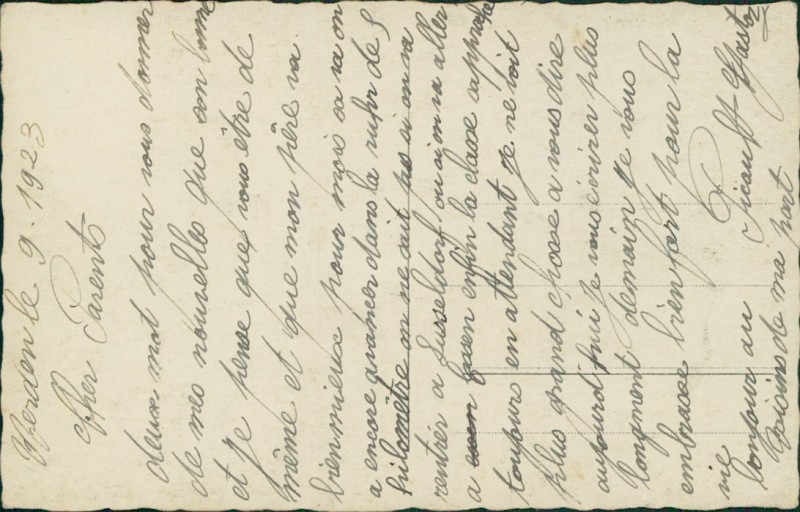 Werden le 9. 1923
Cher Parents
deux mot pour vous donner
de mes nouvelles que son bonne
et je pense que vous être de
même et que mon père va
bien mieux pour mois sa va on
a encore avancer dans la ruhr de 8
kilomètre on ne sait pas si on va
rentrer a Dusseldorf ou si on va aller
a enfin la classe approche
toujours en attendant je ne voit
plus grand chose a vous dire
aujourd'hui je vous écrirer plus
longment demain je vous
embrasse bien fort pour la
vie Picault Gaston
bonjour au
voisins de ma part